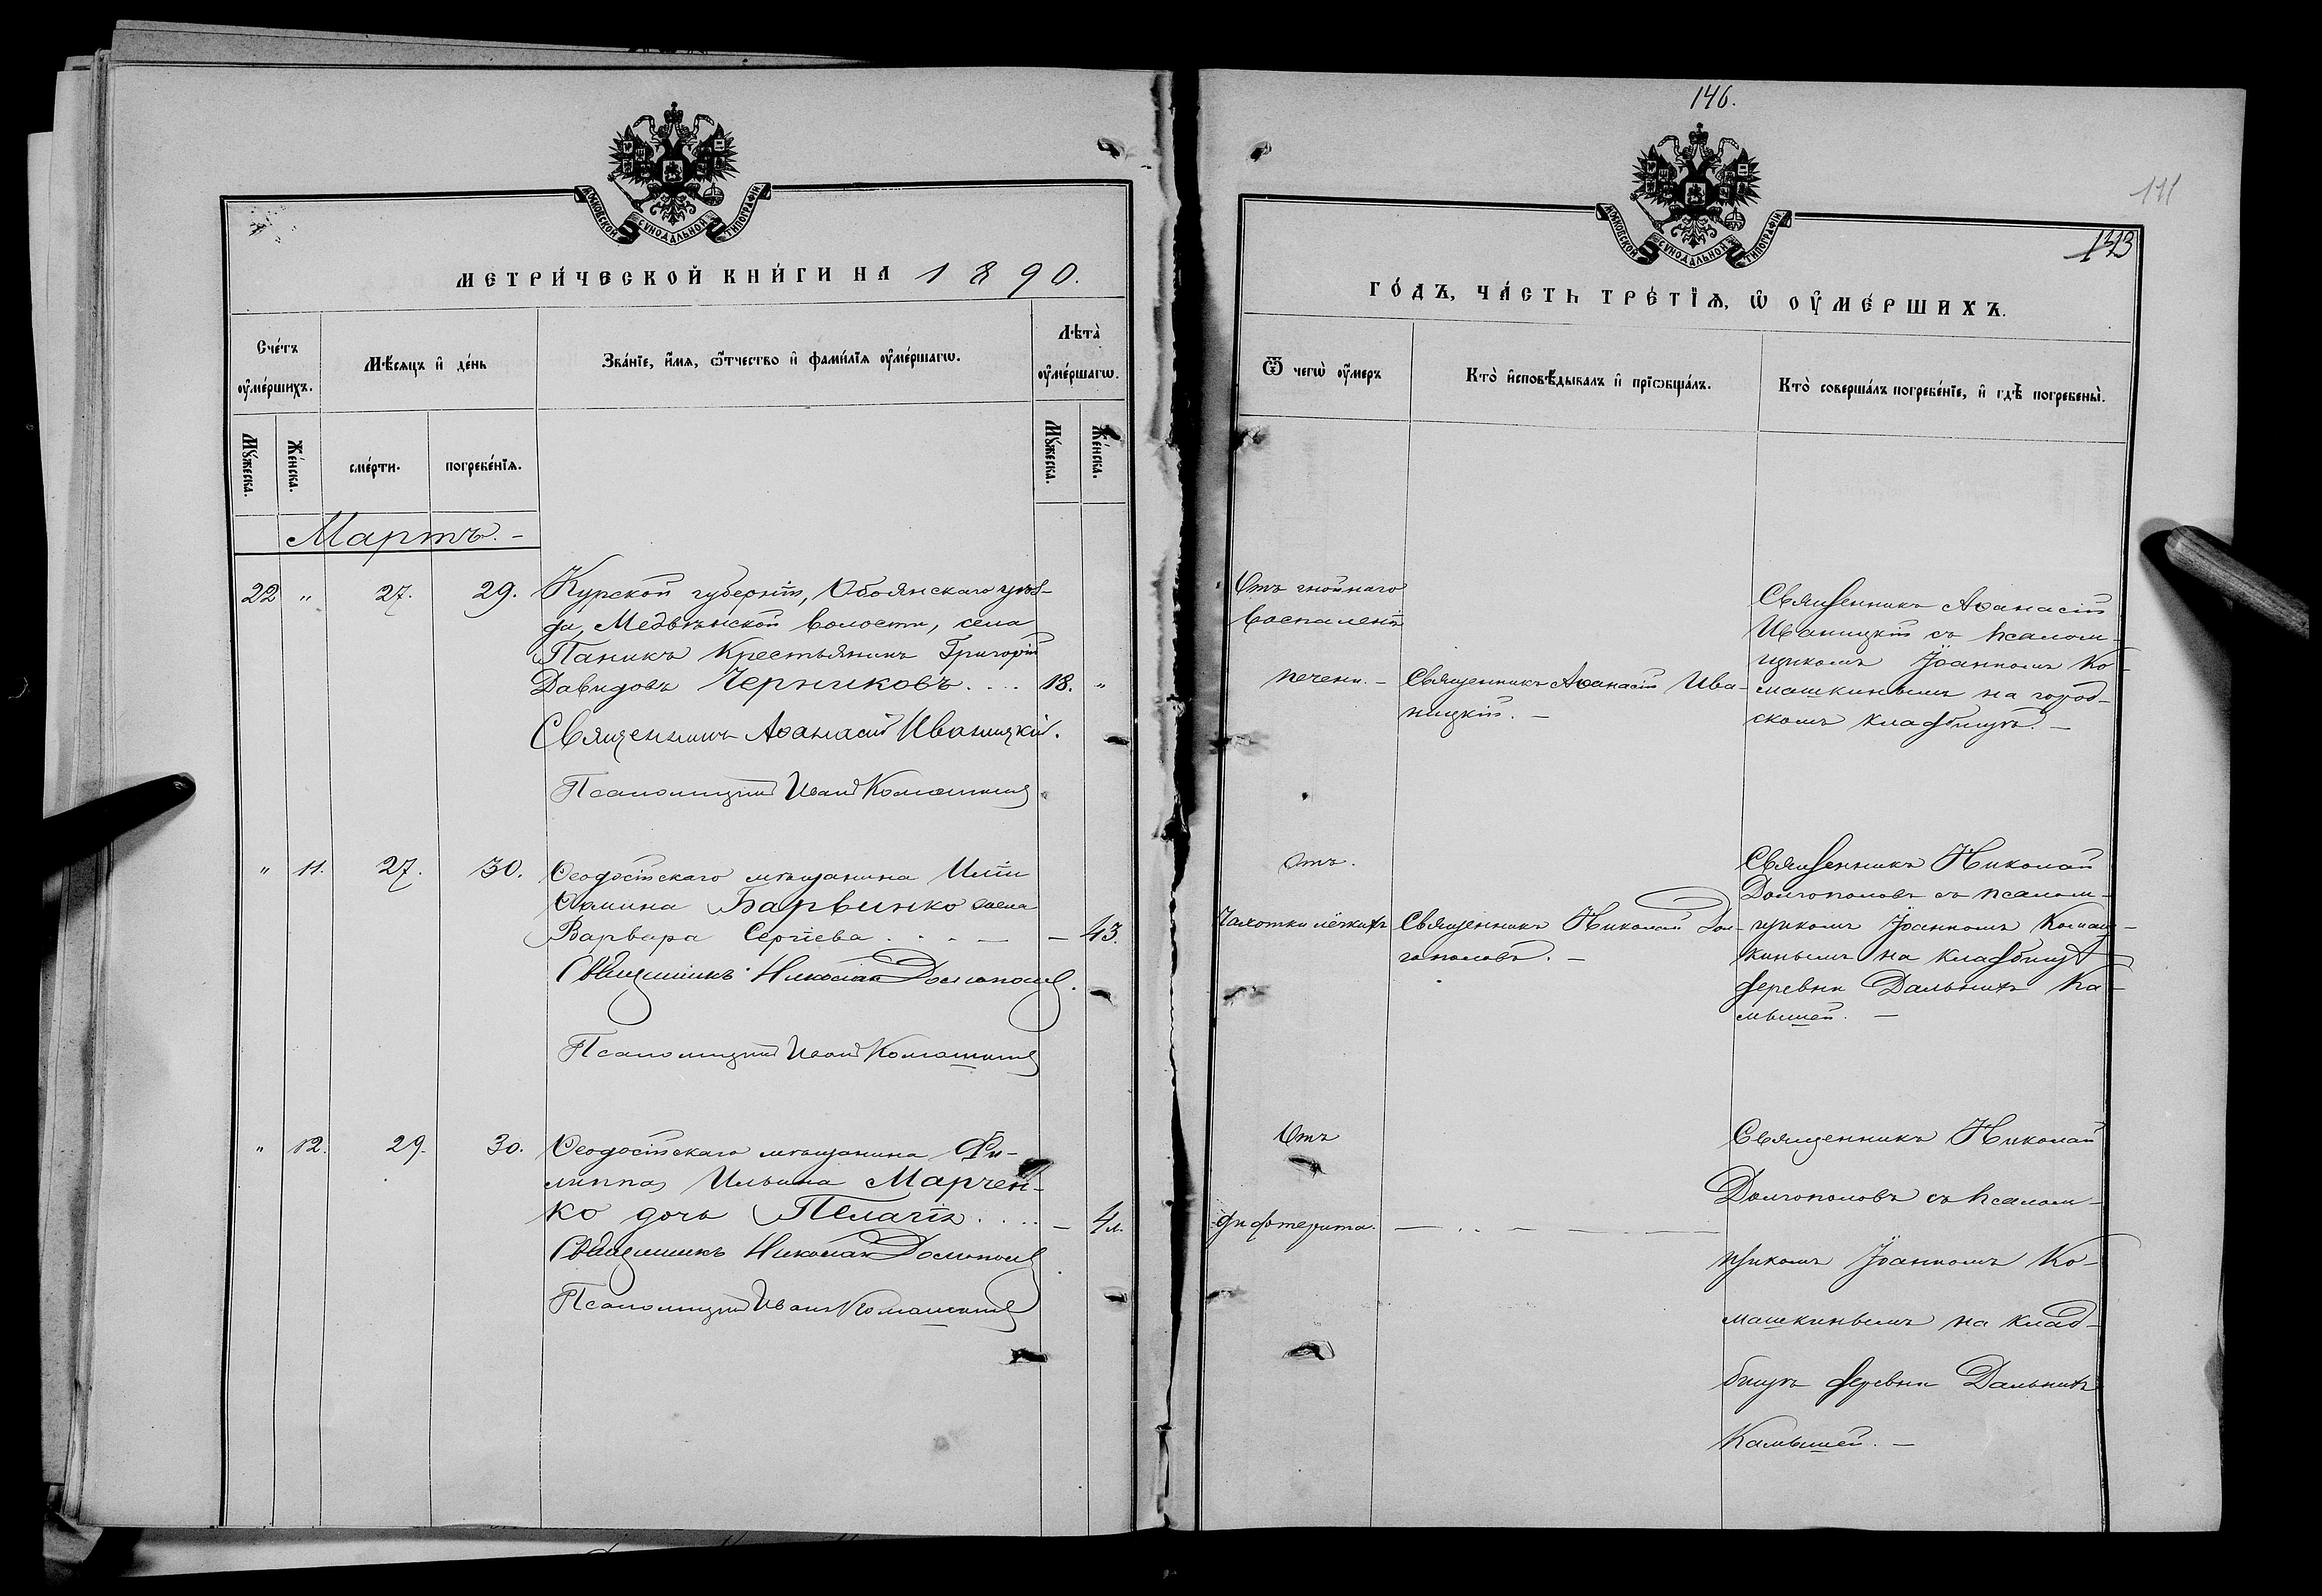 146.
111
133
МОСКОВСКОЙ СУНОДАЛЬНОЙ ТИПОГРАФІИ
МЕТРИ́ЧЕСКОЙ КНИ́ГИ НА 1890.
Сче́тъ ѹ҆ме́ршихъ.
Мѣ́сяцъ и҆ де́нь
Зва́нїе, и҆́мя, ѻ҆́тчество и҆ фами́лїя ѹ҆ме́ршагѡ.
Лѣ́та ѹ҆ме́ршагѡ.
Мꙋ́жеска.
Же́нска.
сме́рти.
погребе́нїя.
Мꙋ́жеска.
Же́нска.
Мартъ. -
22 " 27. 29. Курской губерніи, Обоянскаго уѣз-
да, Медвѣнской волости, села
Паникъ Крестьянинъ Григорій
Давидовъ Черниковъ .... 18. "
Священникъ Аѳанасій Иваницкій.
Псаломщикъ Иванъ Комашкинъ
" 11. 27. 30. Ѳеодосійскаго мѣщанина Иліи
Барвинко жена
Варвара Сергіева . . - - - 43.
Священникъ Николай Долгополовъ.
Псаломщикъ Иванъ Комашкинъ
" 12. 29. 30. Ѳеодосійскаго мѣщанина Фи-
липпа Ильина Марчен-
ко дочь Пелагія .... - 4 л.
Священникъ Николай Долгополовъ
Псаломщикъ Иванъ Комашкинъ
МОСКОВСКОЙ СУНОДАЛЬНОЙ ТИПОГРАФІИ
ГО́ДЪ, ЧА́СТЬ ТРЕ́ТЇѦ, Ѡ҆ ОУ҆МЕ́РШИХЪ.
Ѿ чегѡ̀ ѹ҆́меръ
Кто̀ и҆сповѣ́дывалъ и҆ прїѡбща́лъ.
Кто̀ соверша́лъ погребе́нїе, и҆ гдѣ̀ погребены̀.
Отъ гнойнаго
воспаленія
печени. -
Священникъ Аѳанасій Ива-
ницкій. -
Священникъ Аѳанасій
Иваницкій съ псалом-
щикомъ Іоанномъ Ко-
машкинымъ на город-
скомъ кладбищѣ. -
Отъ.
Чахотки лёгкихъ
Священникъ Николай Дол-
гополовъ. -
Священникъ Николай
Долгополовъ съ псалом-
щикомъ Іоанномъ Комаш-
кинымъ на кладбищѣ
деревни Дальнихъ Ка-
мышей. -
Отъ
дифтерита. - .. - - - -
Священникъ Николай
Долгополовъ съ псалом-
щикомъ Іоанномъ Ко-
машкинымъ на клад-
бищѣ деревни Дальнихъ
Камышей. -